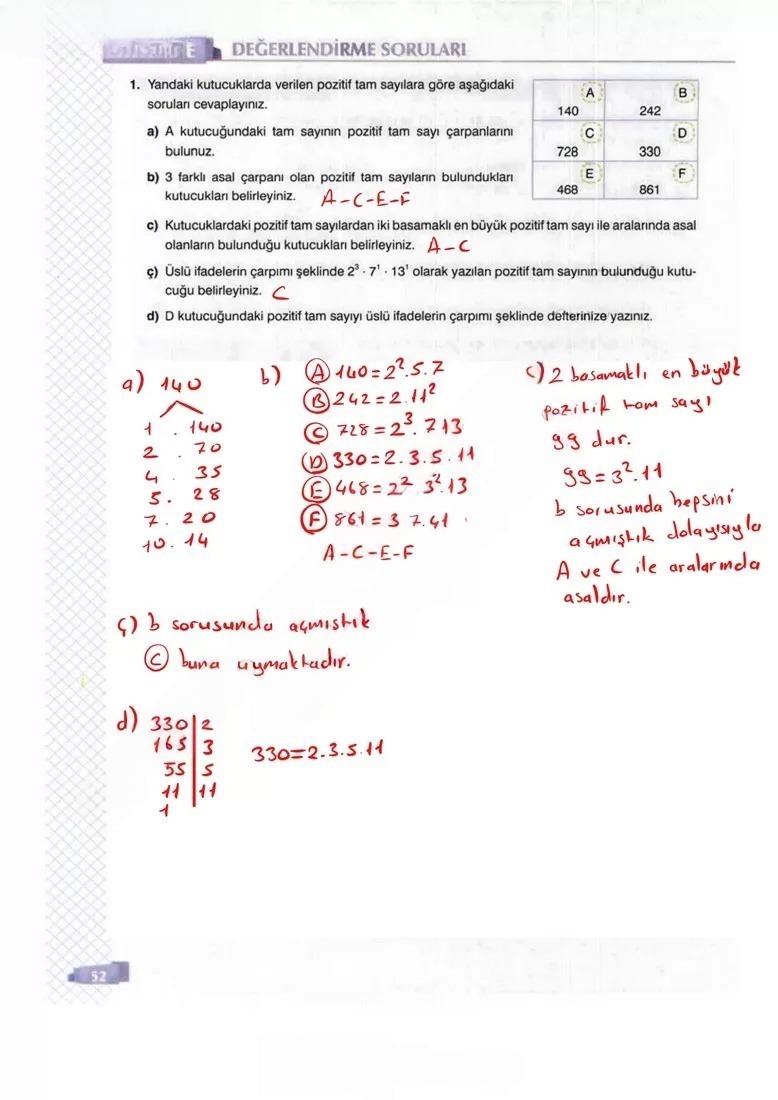 DEĞERLENDİRME SORULARI
1. Yandaki kutucuklarda verilen pozitif tam sayılara göre aşağıdaki
soruları cevaplayınız.
a) A kutucuğundaki tam sayının pozitif tam sayı çarpanlarını
bulunuz.
b) 3 farklı asal çarpanı olan pozitif tam sayıların bulundukları
kutucukları belirleyiniz. A-C-E-F
A B
140 242
C D
728 330
E F
468 861
c) Kutucuklardaki pozitif tam sayılardan iki basamaklı en büyük pozitif tam sayı ile aralarında asal
olanların bulunduğu kutucukları belirleyiniz. A-C
ç) Üslü ifadelerin çarpımı şeklinde 2³ · 7¹ · 13¹ olarak yazılan pozitif tam sayının bulunduğu kutu-
cuğu belirleyiniz. C
d) D kutucuğundaki pozitif tam sayıyı üslü ifadelerin çarpımı şeklinde defterinize yazınız.
a) 140
1 . 140
2 . 70
4 . 35
5 . 28
7 . 20
10 . 14
b) A 140=2².5.7
B 242=2.11²
C 728=2³.713
D 330=2.3.5.11
E 468=2² 3².13
F 861=3 7.41
A-C-E-F
c) 2 basamaklı en büyük
pozitif tam sayı
99 dur.
99=3².11
b sorusunda hepsini
açmıştık dolayısıyla
A ve C ile aralarında
asaldır.
ç) b sorusunda açmıştık
C buna uymaktadır.
d) 330 2
165 3
55 5
11 11
1
330=2.3.5.11
52